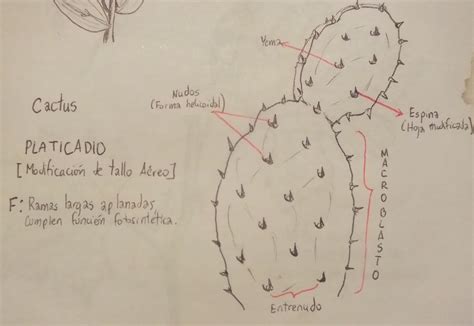 Cactus
PLATICADIO
[Modificación de tallo Aéreo]
F: Ramas largas aplanadas
Cumplen función fotosintética.
Nudos
(Forma helicoidal)
Yema
Espina
(Hoja modificada)
MACROBLASTO
Entrenudo